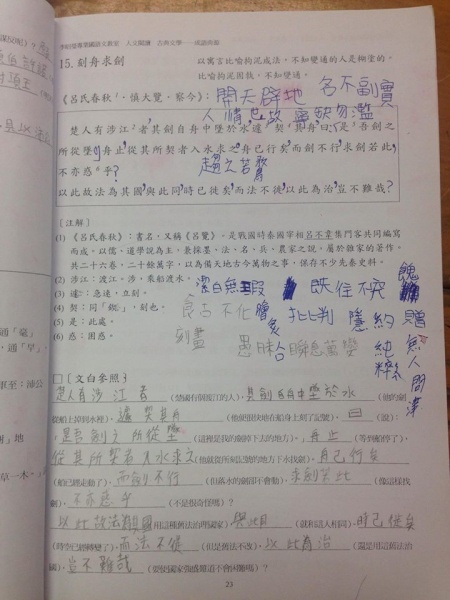 人文閱讀 古典文學──成語出處
15. 刻舟求劍
以寓言比喻拘泥成法,不知變通的人是糊塗的,
比喻拘泥固執,不知變通。
《呂氏春秋》‧慎大覽‧察今》:
開天闢地 名不副實
人情世故 寧缺勿濫
楚人有涉江者其劍自舟中墜於水遽契其舟曰是吾劍之
所從墜舟止從其所契者入水求之舟已行矣而劍不行求劍若此
不亦惑乎?
趨之若鶩
以此故法為其國與此同時已徙矣而法不徙以此為治豈不難哉?
[注解]
(1) 《呂氏春秋》:書名,又稱《呂覽》,是戰國時秦國宰相呂不韋集門客共同編寫
而成。以儒、道學說為主,兼採墨、法、名、兵、農家之說,屬於雜家的著作。
共二十六卷,二十餘萬字,以為備天地古今萬物之事,保存不少先秦史料。
(2) 涉江:渡江。涉,乘船渡水。
(3) 遽:急速,立刻。
(4) 契:同「鍥」,刻也。
(5) 是:此處。
(6) 惑:困惑。
潔白無瑕 既往不究 餽贈
食古不化 批判 隱約
刻畫 愚昧 瞬息萬變 純粹 無人問津
□〔文白參照〕
楚人有涉江者(楚國有個渡江的人),其劍自舟中墜於水(他的劍
從船上掉到水裡),遽契其舟(他便很快地在船身上刻了記號),曰(說):
是吾劍之所從墜(這裡是我的劍掉下去的地方),舟止(等到船停了),
從其所契者入水求之(他就從所刻記號的地方下水找劍),舟已行矣
(船已經走動了),而劍不行(但落水的劍卻不會動),求劍若此(像這樣找
劍),不亦惑乎(不是很奇怪嗎?)
以此故法為其國(用這種舊法的理國家),與此同(就和這人相同),時已徙矣
(時空已經轉變了),而法不徙(但是舊法不改),以此為治(還是用這舊法治
國),豈不難哉(要使國家強盛難道不會困難嗎?)
23